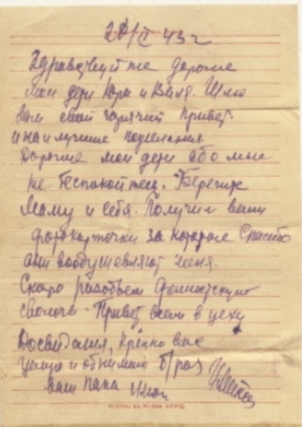 43 г
Здравствуйте дорогие
мои дети и Ваня. Шлю
вам свой горячий привет
и наилучшие пожелания.
Дорогие мои дети обо мне
не беспокойтесь. Берегите
маму и себя. Получил ваши
фотокарточки за которые спасибо
они воодушевляют меня.
Скоро разобьем фашистскую
сволочь - Привет всем в цеху
Досвидания, крепко вас
целую и обнимаю раз
Ваш папа